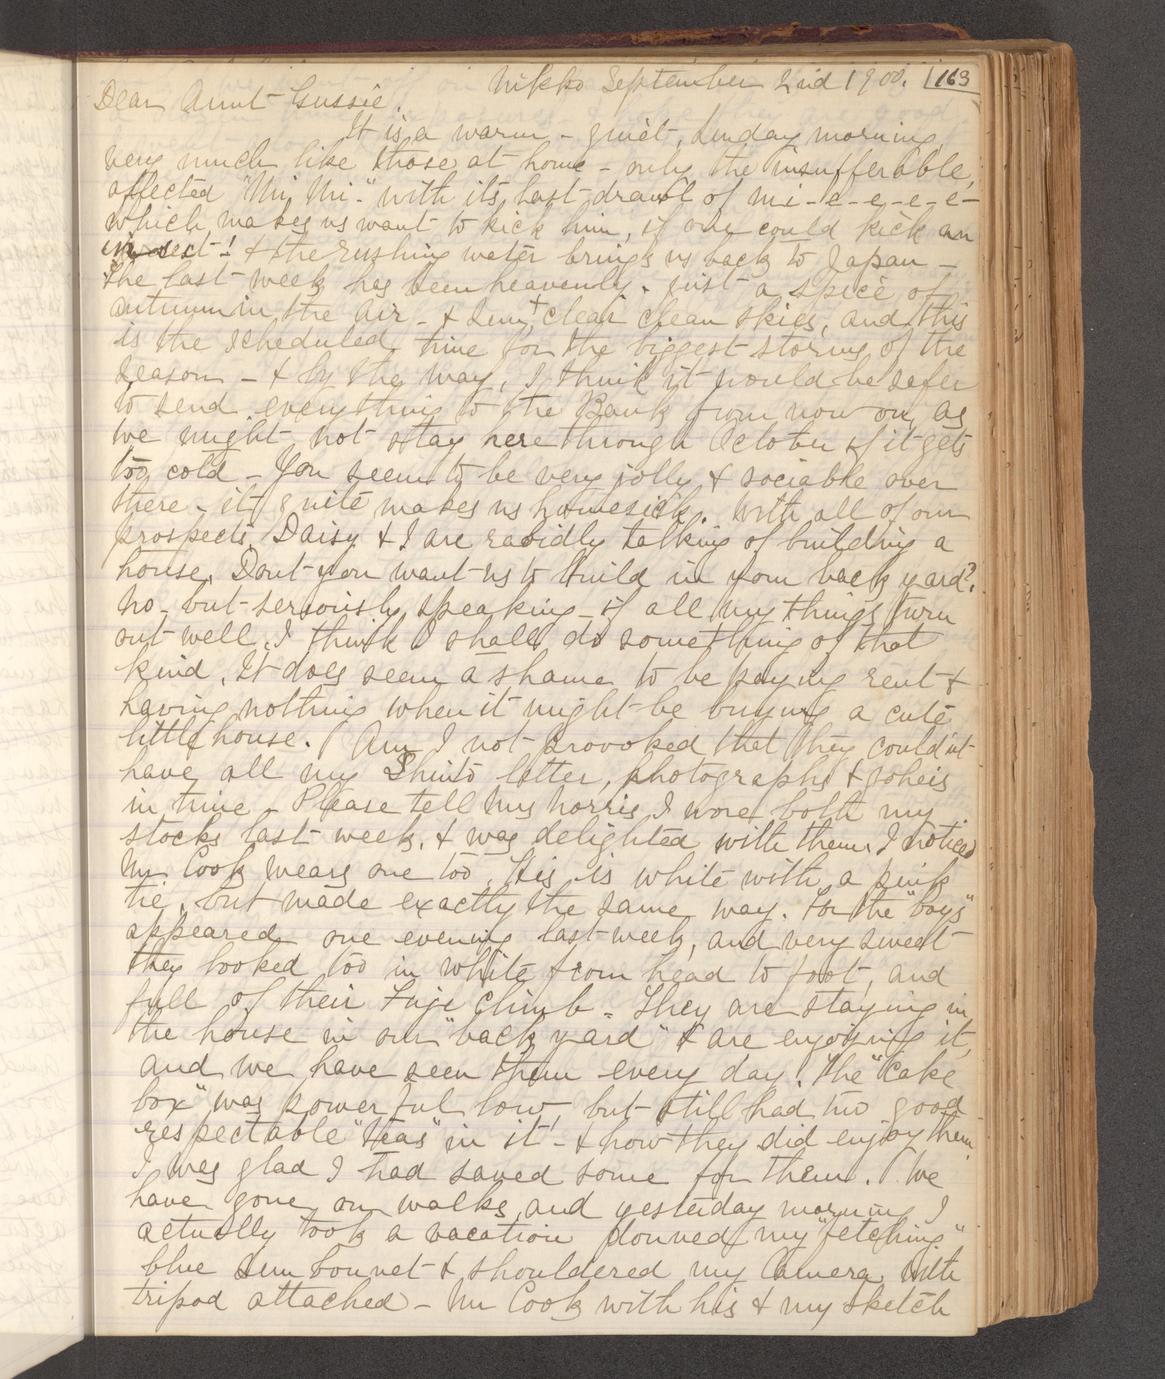 Nikko September 2nd 1900. 163
Dear Aunt Gussie.
It is a warm - quiet, Sunday morning,
very much like those at home - only the insufferable,
affected "Mi, Mi-" with its last drawl of mi-e-e-e-e-
which makes us want to kick him, if one could kick an
insect! & the rushing water brings us back to Japan -
The last week has been heavenly. just a spice of
autumn in the air - & sun & clear clean skies, and this
is the scheduled time for the biggest storms of the
season - & by the way, I think it would be safer
to send everything to the Bank from now on, as
we might not stay here through October if it gets
too cold - You seem to be very jolly & sociable over
there - it quite makes us homesick. With all of our
prospects, Daisy & I are rapidly talking of building a
house. Dont you want us to build in your back yard?
No - but seriously speaking - if all my things turn
out well, I think I shall do something of that
kind. It does seem a shame to be paying rent &
having nothing when it might be buying a cute
little house. Am I not provoked that they could'nt
have all my Shinto letter, photographs & goheis
in time - Please tell Mrs Norris I wore both my
stocks last week, & was delighted with them. I notice
Mr Cook wears one too. His is white with a pink
tie, but made exactly the same way. For the "boys"
appeared one evening last week, and very sweet
they looked too in white from head to foot, and
full of their Fuji climb - They are staying in
the house in our "back yard" & are enjoying it,
and we have seen them every day. The "Cake
box" was powerful low, but still had two good
respectable "teas" in it! - & how they did enjoy them
I was glad I had saved some for them. We
have gone on walks, and yesterday morning I
actually took a vacation donned my "fetching"
blue sun bonnet & shouldered my Camera, with
tripod attached - Mr Cook with his & my sketch